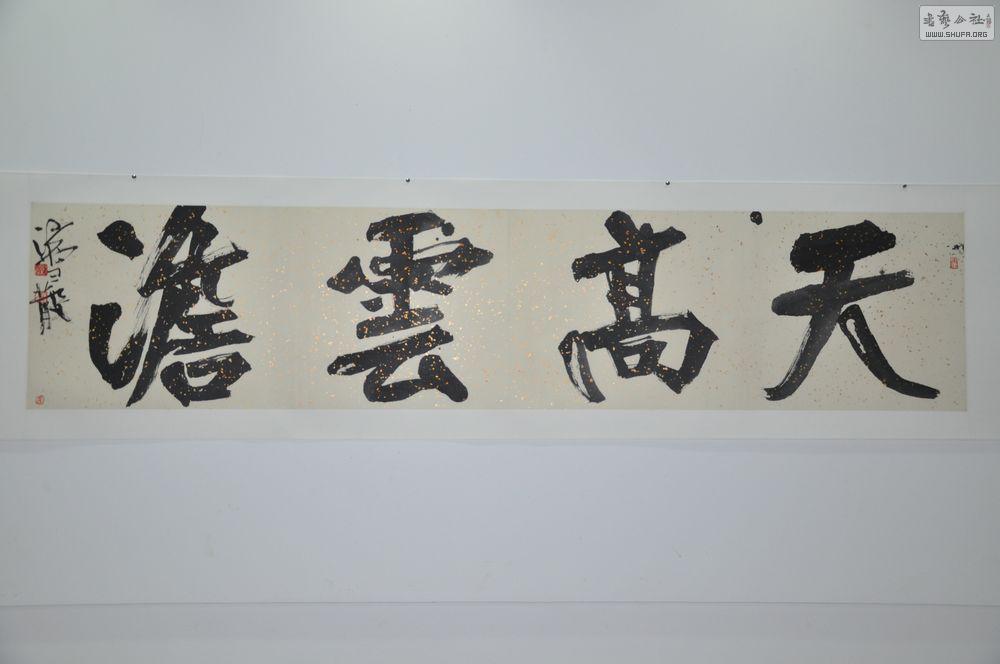 天高雲澹
书艺公社
WWW.SHUFA.ORG